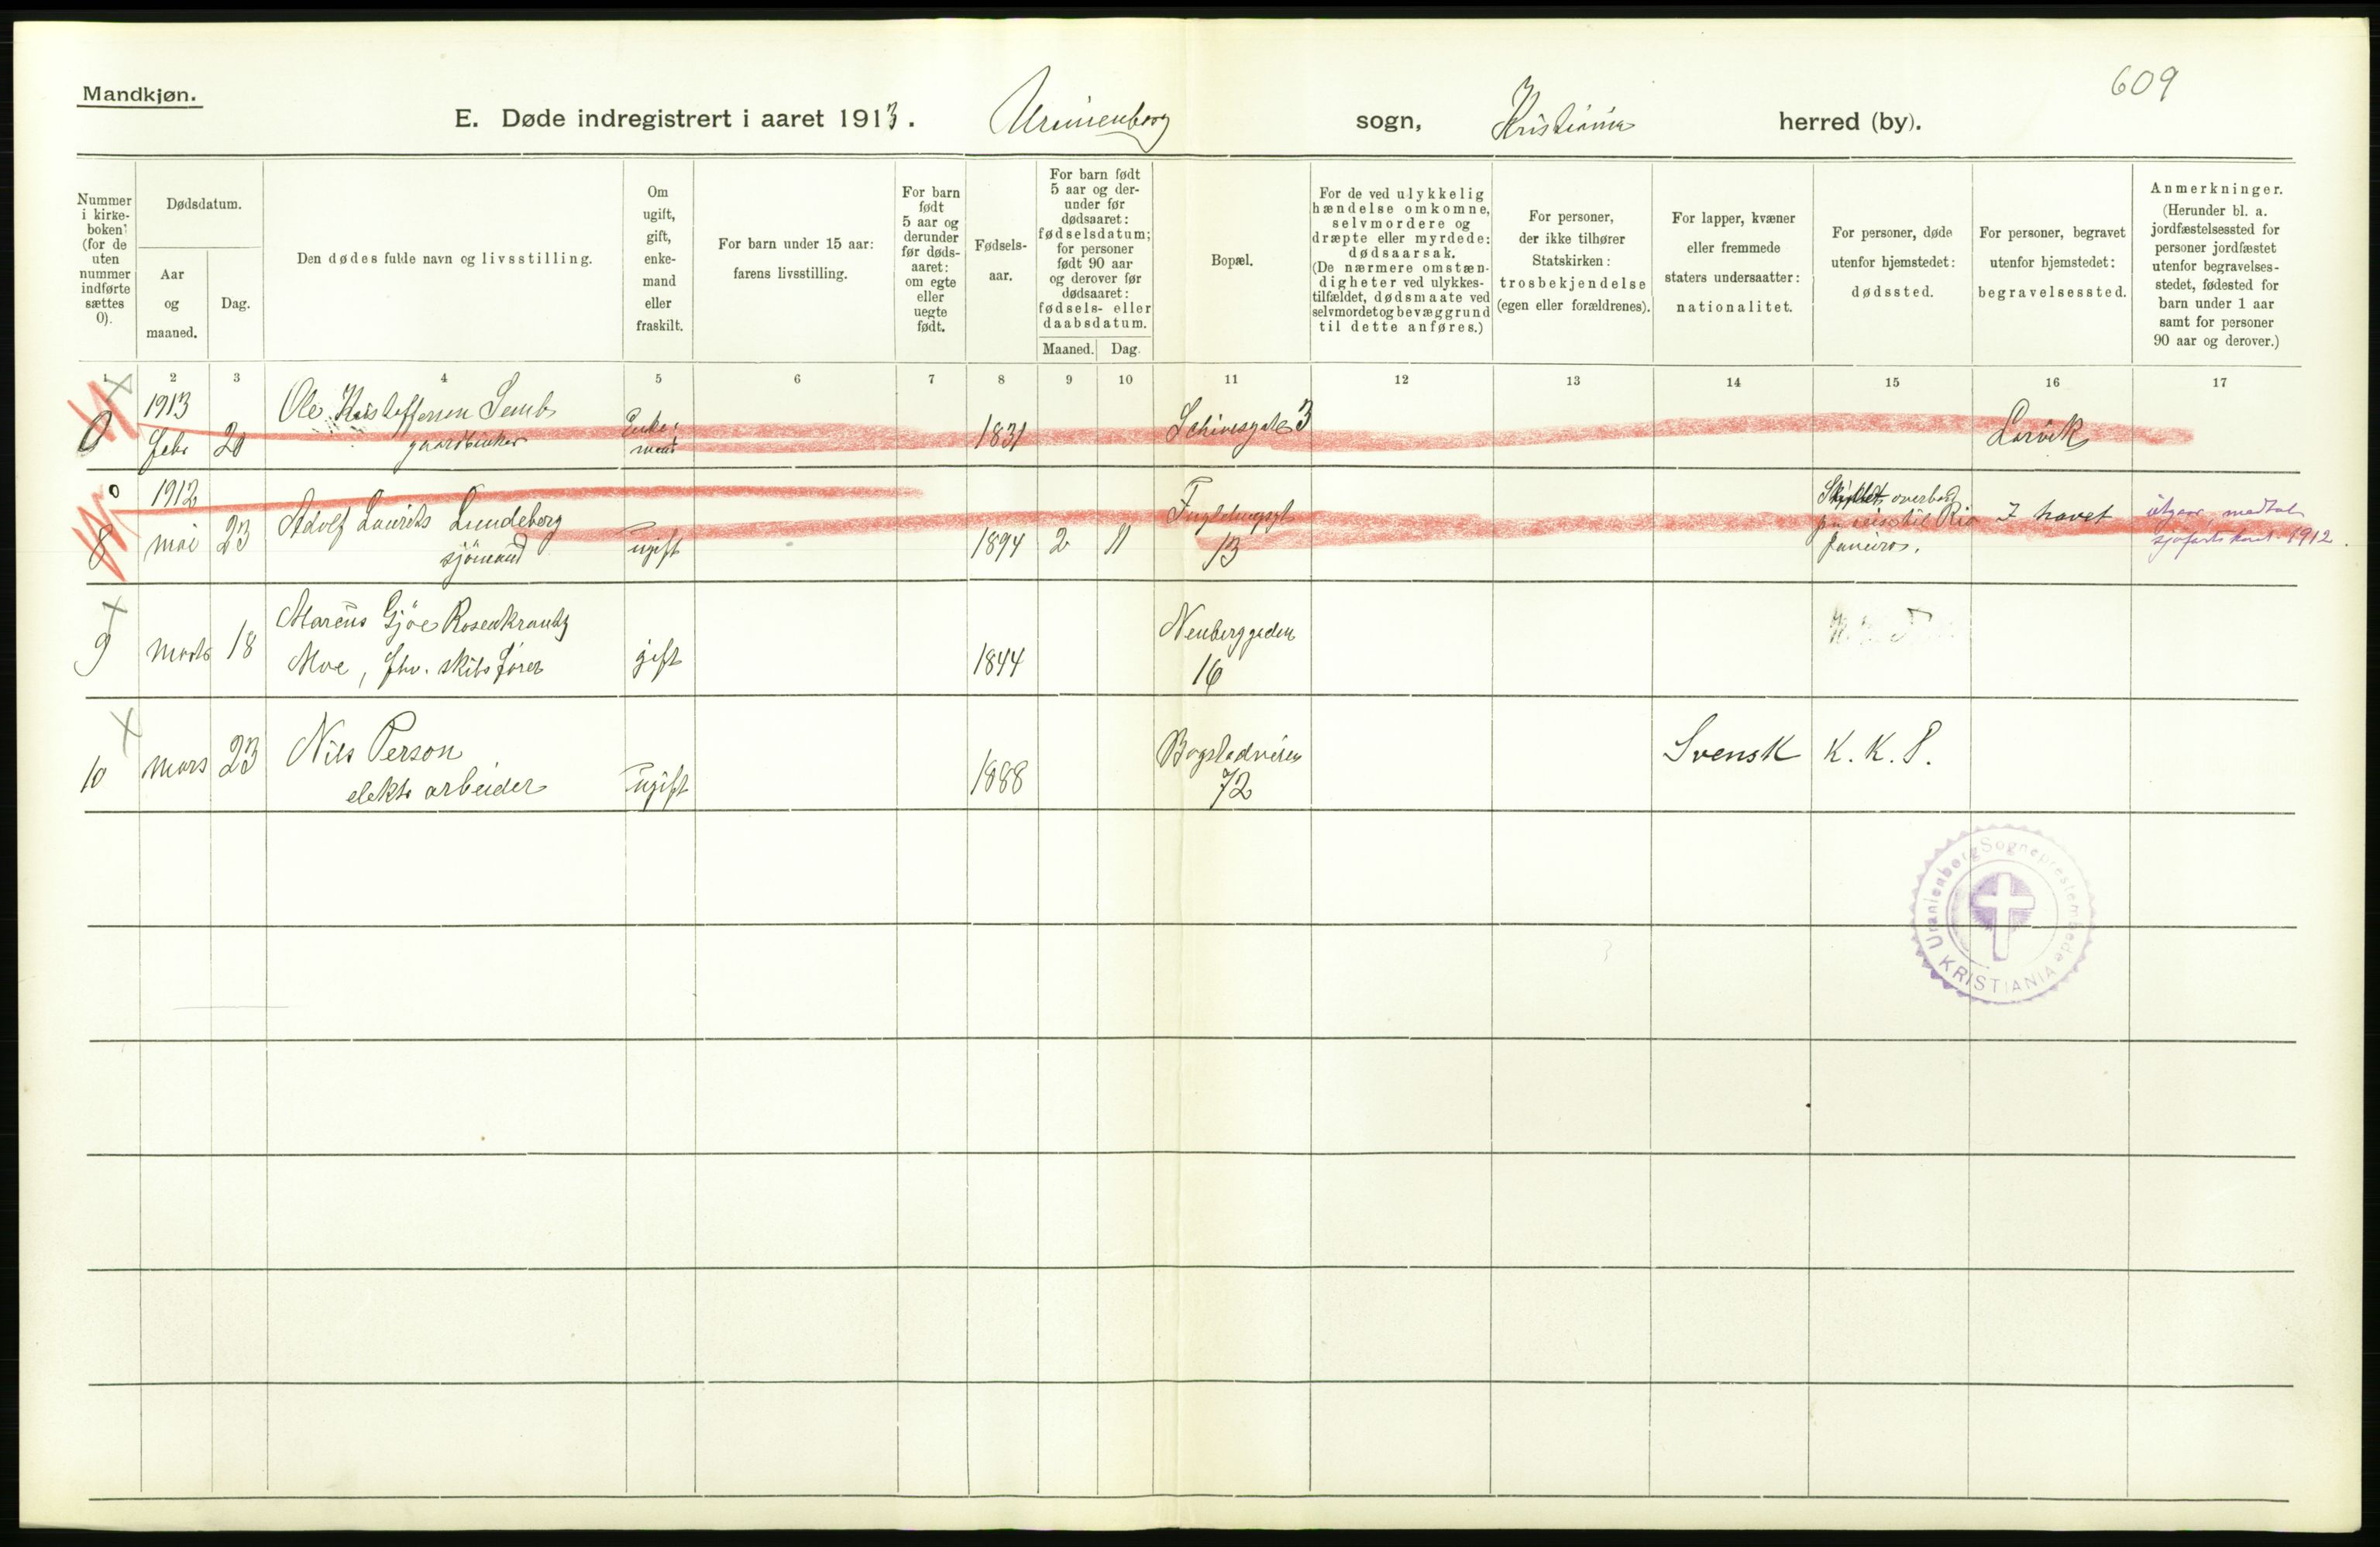 Mandkjøn.
609
E. Døde indregistrert i aaret 1913. Uranienborg sogn, Kristiania herred (by).
Nummer i kirkeboken (for de uten nummer indførte sættes 0).
Dødsdatum.
Aar og maaned.
Dag.
Den dødes fulde navn og livsstilling.
Om ugift, gift, enkemand eller fraskilt.
For barn under 15 aar: farens livsstilling.
For barn født 5 aar og derunder før dødsaaret: om egte eller uegte født.
Fødselsaar.
For barn født 5 aar og derunder før dødsaaret: fødselsdatum; for personer født 90 aar og derover før dødsaaret: fødsels- eller daabsdatum.
Maaned. Dag.
Bopæl.
For de ved ulykkelig hændelse omkomne, selvmordere og dræpte eller myrdede: dødsaarsak. (De nærmere omstændigheter ved ulykkestilfældet, dødsmaate ved selvmordet og bevæggrund til dette anføres.)
For personer, der ikke tilhører Statskirken: trosbekjendelse (egen eller forældrenes).
For lapper, kvæner eller fremmede staters undersaatter: nationalitet.
For personer, døde utenfor hjemstedet: dødssted.
For personer, begravet utenfor hjemstedet: begravelsessted.
Anmerkninger. (Herunder bl. a. jordfæstelsessted for personer jordfæstet utenfor begravelsesstedet, fødested for barn under 1 aar samt for personer 90 aar og derover.)
1 2 3 4 5 6 7 8 9 10 11 12 13 14 15 16 17
0 1913 Febr 20 Ole Kristoffersen Semb gaardbruker Enkemand 1831 Schivesgate 3 Larvik
0
8 1912 mai 23 Adolf Laurits Lundeberg sjömand ugift 1894 2 11 13 Skyllet overbord paa reise til Rio Janeiro. I havet utgaar medtat sjøfarts kont. 1912.
9 Marts 18 Marcus Gjöe Rosenkrantz Moe, fhv. skibsfører gift 1844 Neuberggaden 16
10 Mars 23 Nils Person elektr arbeider ugift 1888 Bogstadveien 72 Svensk K. K. S.
Uranienborg Sogneprestembede
KRISTIANIA